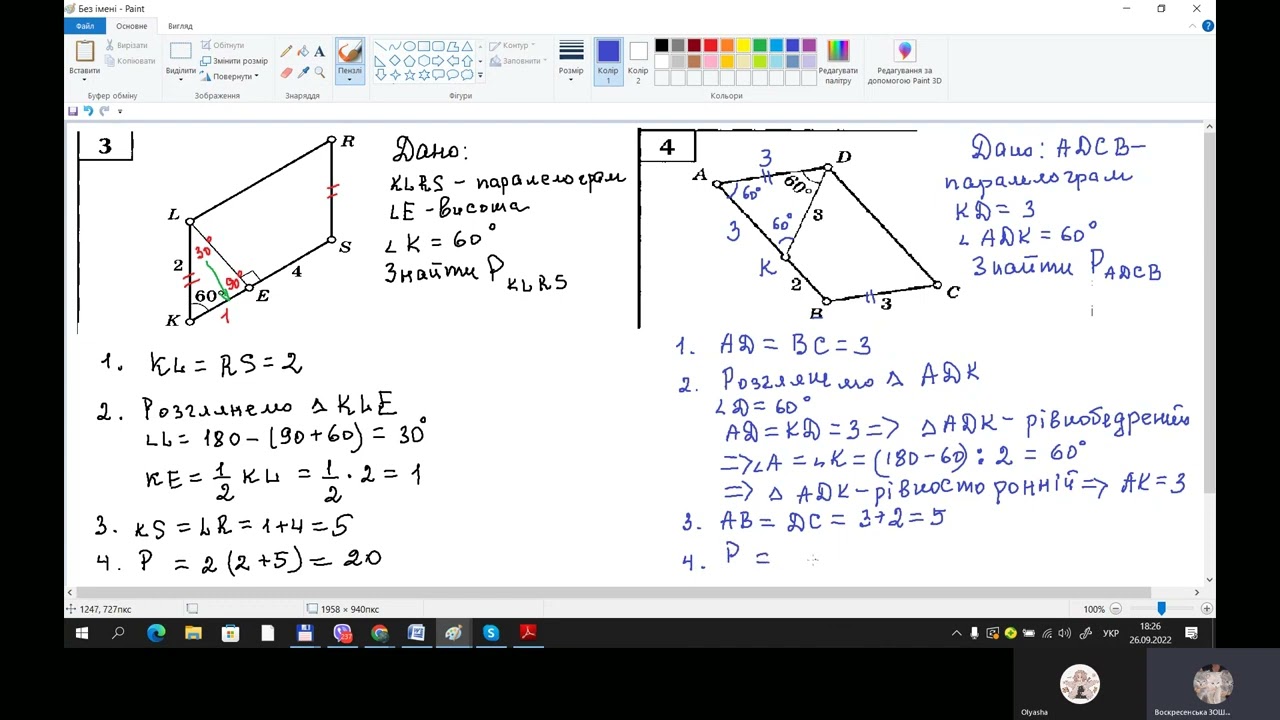 Без імені - Paint
Файл
Основне
Вигляд
Вставити
Вирізати
Копіювати
Буфер обміну
Виділити
Обітнути
Змінити розмір
Повернути
Зображення
Знаряддя
Пензлі
Контур
Заповнити
Фігури
Розмір
Колір 1
Колір 2
Редагувати палітру
Кольори
Редагування за допомогою Paint 3D
3
R
L
S
E
K
2
4
30°
90°
60°
1
Дано:
KLRS - паралелограм
LE - висота
∠K = 60°
Знайти P KLRS
1. KL = RS = 2
2. Розглянемо Δ KLE
∠L = 180 - (90+60) = 30°
KE = 1/2 KL = 1/2 · 2 = 1
3. KS = LR = 1+4 = 5
4. P = 2(2+5) = 20
4
A
D
C
B
K
3
60°
60°
60°
3
3
2
3
Дано: ADCB -
паралелограм
KD = 3
∠ADK = 60°
Знайти P ADCB
1. AD = BC = 3
2. Розглянемо Δ ADK
∠D = 60°
AD = KD = 3 => Δ ADK - рівнобедрений
=> ∠A = ∠K = (180-60) : 2 = 60°
=> Δ ADK - рівносторонній => AK = 3
3. AB = DC = 3+2 = 5
4. P =
1247, 727пкс
1958 × 940пкс
100%
237
УКР
18:26
26.09.2022
Olyasha
Воскресенська ЗОШ...